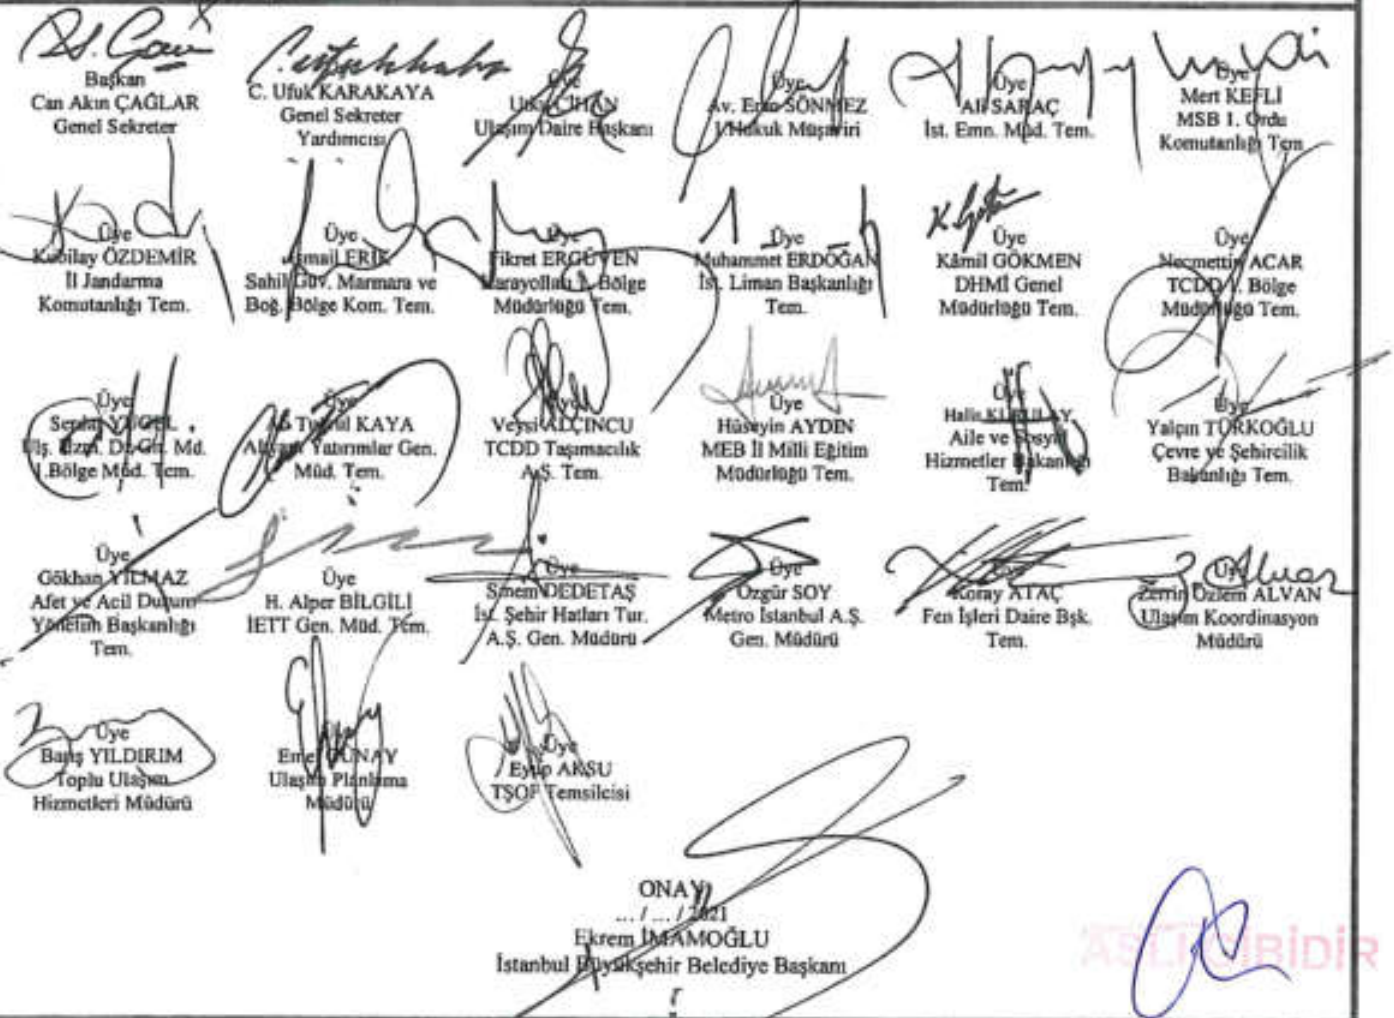 Başkan
Can Akın ÇAĞLAR
Genel Sekreter
C. Ufuk KARAKAYA
Genel Sekreter
Yardımcısı
Üye
Utku CİHAN
Ulaşım Daire Başkanı
Üye
Av. Eren SÖNMEZ
1.Hukuk Müşaviri
Üye
Ali SARAÇ
İst. Emn. Müd. Tem.
Üye
Mert KEFLİ
MSB 1. Ordu
Komutanlığı Tem
Üye
Kubilay ÖZDEMİR
İl Jandarma
Komutanlığı Tem.
Üye
İsmail ERİK
Sahil Güv. Marmara ve
Boğ. Bölge Kom. Tem.
Üye
Fikret ERGÜVEN
Karayolları 1. Bölge
Müdürlüğü Tem.
Üye
Muhammet ERDOĞAN
İst. Liman Başkanlığı
Tem.
Üye
Kâmil GÖKMEN
DHMİ Genel
Müdürlüğü Tem.
Üye
Necmettin ACAR
TCDD 1. Bölge
Müdürlüğü Tem.
Üye
Serdar YÜCEL
Ulş. Uzm. Md.
1.Bölge Müd. Tem.
Üye
Ali KAYA
Altyapı Yatırımlar Gen.
Müd. Tem.
Üye
Veysi ALÇINCU
TCDD Taşımacılık
A.Ş. Tem.
Üye
Hüseyin AYDIN
MEB İl Milli Eğitim
Müdürlüğü Tem.
Üye
Aile ve Sosyal
Hizmetler Bakanlığı
Tem.
Üye
Yalçın TÜRKOĞLU
Çevre ve Şehircilik
Bakanlığı Tem.
Üye
Gökhan YILMAZ
Afet ve Acil Durum
Yönetim Başkanlığı
Tem.
Üye
H. Alper BİLGİLİ
İETT Gen. Müd. Tem.
Üye
Sinem DEDETAŞ
İst. Şehir Hatları Tur.
A.Ş. Gen. Müdürü
Üye
Özgür SOY
Metro İstanbul A.Ş.
Gen. Müdürü
Üye
Koray ATAÇ
Fen İşleri Daire Bşk.
Tem.
Üye
Zerrin Özlem ALVAN
Ulaşım Koordinasyon
Müdürü
Üye
Barış YILDIRIM
Toplu Ulaşım
Hizmetleri Müdürü
GÜNAY
Ulaşım Planlama
Müdürü
Üye
Eyüp AKSU
TŞOF Temsilcisi
ONAY
... / ... / 2021
Ekrem İMAMOĞLU
İstanbul Büyükşehir Belediye Başkanı
ASLI GİBİDİR